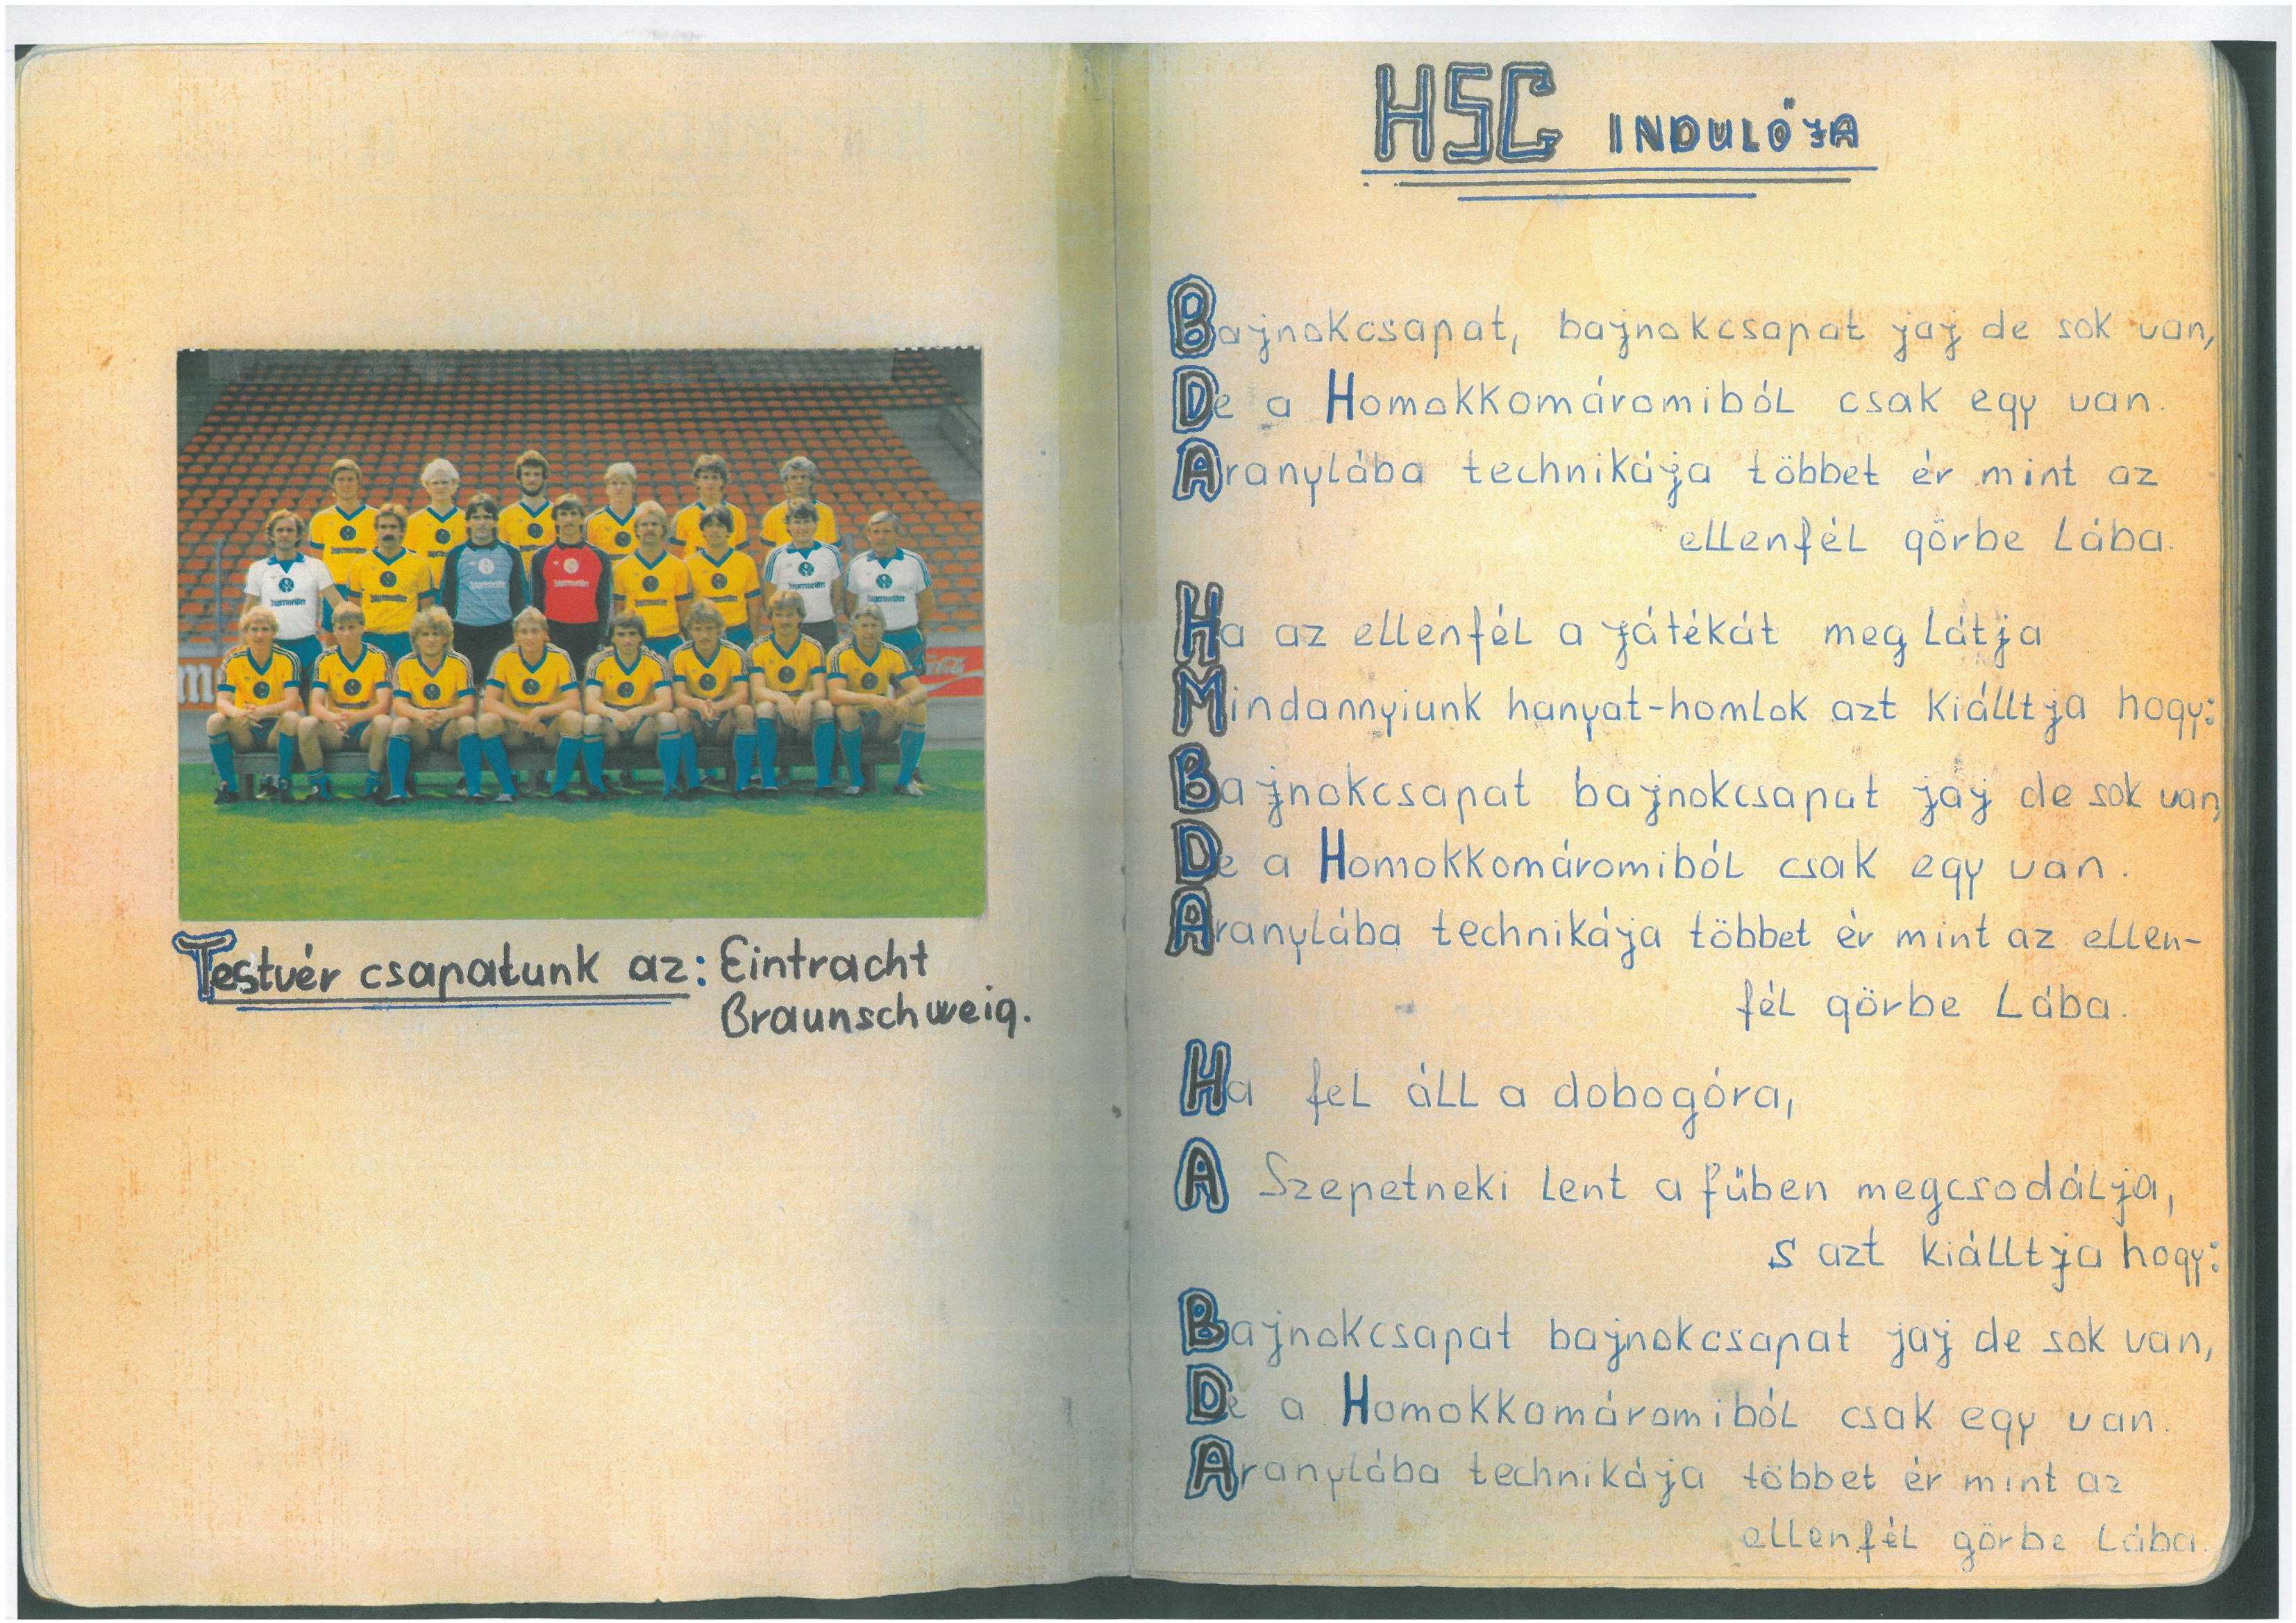 Testvér csapatunk az: Eintracht
Braunschweig.
HSC INDULÓJA
Bajnokcsapat, bajnokcsapat jaj de sok van,
De a Homokkomáromiból csak egy van.
Aranylába technikája többet ér mint az
ellenfél görbe lába.
Ha az ellenfél a játékát meg látja
Mindannyiunk hanyat-homlok azt kiálltja hogy:
Bajnokcsapat bajnokcsapat jaj de sok van,
De a Homokkomáromiból csak egy van.
Aranylába technikája többet ér mint az ellen-
fél görbe lába.
Ha fel áll a dobogóra,
A Szepetneki lent a fűben megcsodálja,
s azt kiálltja hogy:
Bajnokcsapat bajnokcsapat jaj de sok van,
De a Homokkomáromiból csak egy van.
Aranylába technikája többet ér mint az
ellenfél görbe lába.